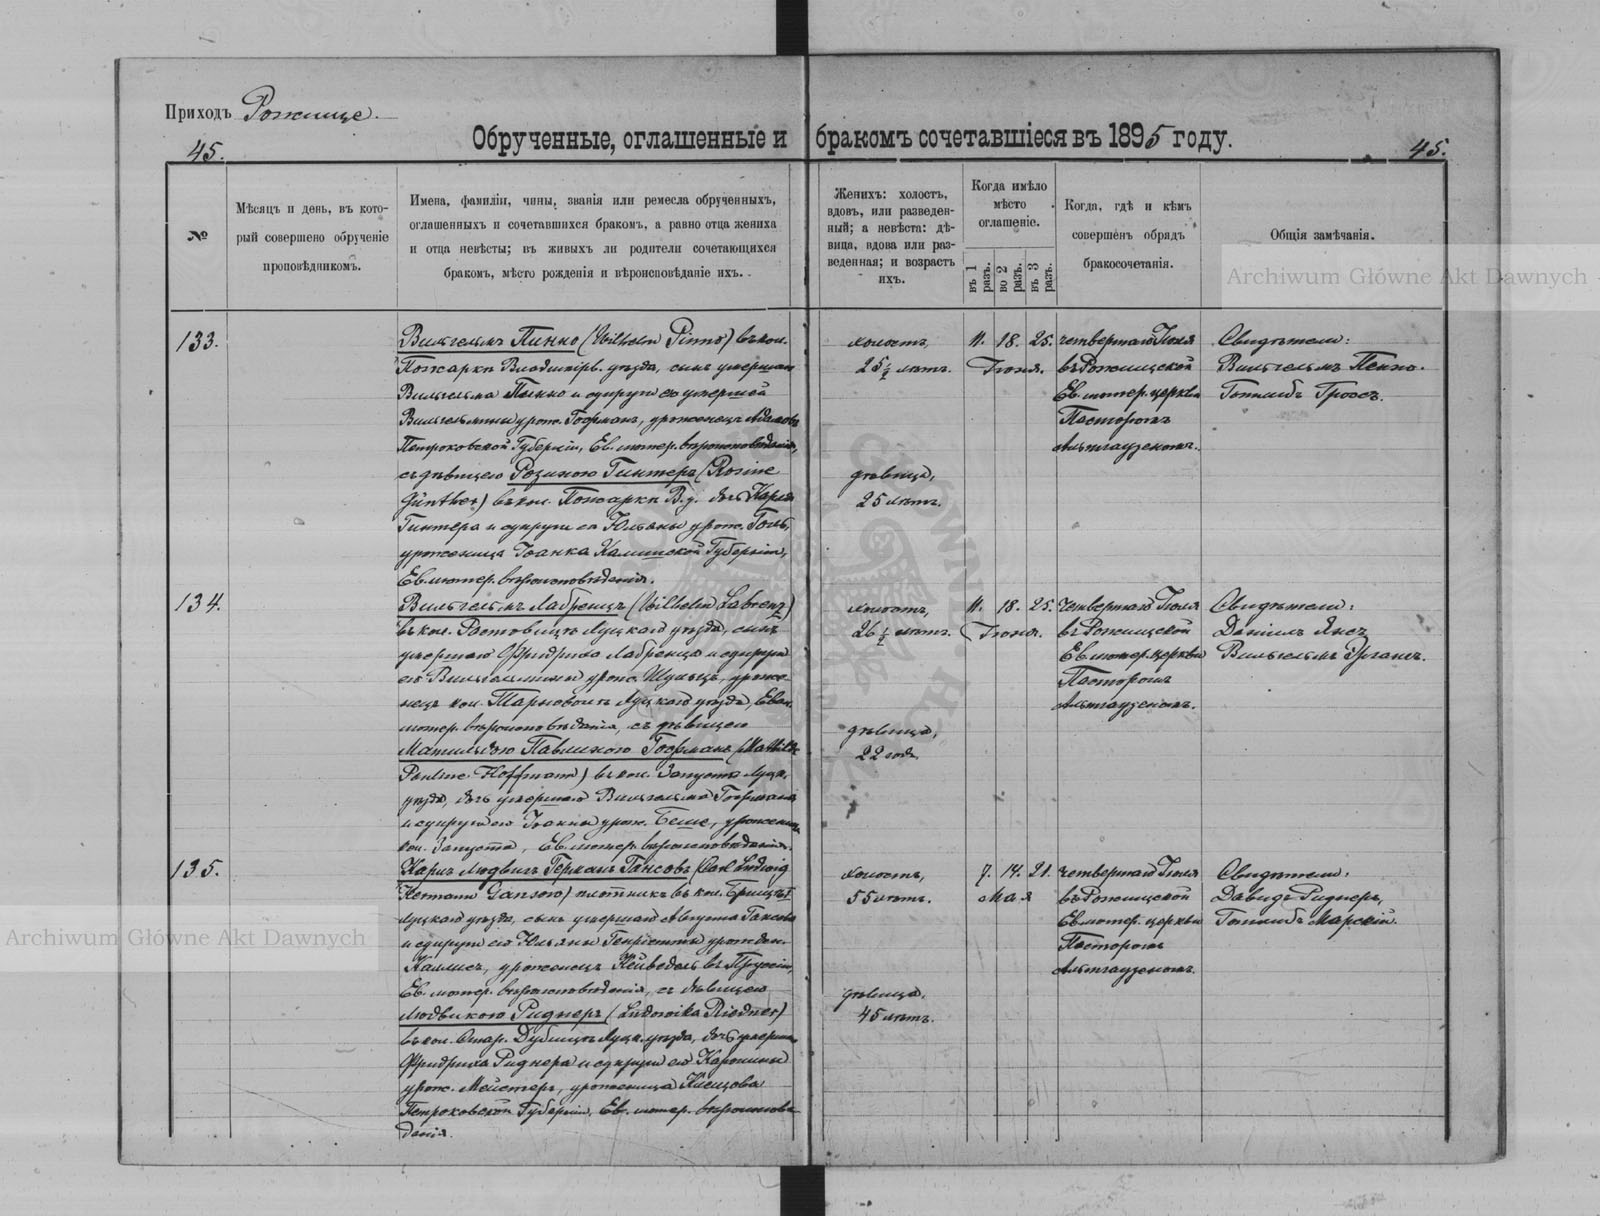 Приходъ Рожище.
Обрученные, оглашенные и бракомъ сочетавшіеся въ 1895 году.
45.
45.
№
Мѣсяцъ и день, въ кото-
рый совершено обрученіе
проповѣдникомъ.
Имена, фамиліи, чины, званія или ремесла обрученныхъ,
оглашенныхъ и сочетавшихся бракомъ, а равно отца жениха
и отца невѣсты; въ живыхъ ли родители сочетающихся
бракомъ, мѣсто рожденія и вѣроисповѣданіе ихъ.
Женихъ: холостъ,
вдовъ, или разведен-
ный; а невѣста: дѣ-
вица, вдова или раз-
веденная; и возрастъ
ихъ.
Когда имѣло
мѣсто
оглашеніе.
въ 1 разъ.
во 2 разъ.
въ 3 разъ.
Когда, гдѣ и кѣмъ
совершенъ обрядъ
бракосочетанія.
Общія замѣчанія.
Archiwum Główne Akt Dawnych
133.
Вильгельмъ Пинно (Wilhelm Pinno) въ кол.
Пожарки Владимірв. уѣзда, сынъ умершаго
Вильгельма Пинно и супруги его умершей
Вильгельмины урож. Гофманъ, уроженецъ
Петроковской Губерніи, Ев. лютер. вѣроисповѣданія,
съ дѣвицею Розиною Гинтеръ (Rosine
Günther) въ кол. Пожарки В. у. дочь Карла
Гинтера и супруги его Юльяны урож. Голь,
уроженица Іоанка Калишской Губерніи,
Ев. лютер. вѣроисповѣданія.
холостъ,
25 ½ лѣтъ.
дѣвица,
25 лѣтъ.
11. 18. 25.
Іюня.
четвертаго Іюля
въ Рожищской
Ев. лютер. церкви
Пасторомъ
Альтгаузеномъ.
Свидѣтели:
Вильгельмъ Пенно.
Готлибъ Гроссъ.
134.
Вильгельмъ Лабренцъ (Wilhelm Labrenz)
въ кол. Растовицъ Луцкаго уѣзда, сынъ
умершаго Фридриха Лабренца и супруги
его Вильгельмины урож. Шульцъ, уроже-
нецъ кол. Тарновоки Луцкаго уѣзда, Еван.
лютер. вѣроисповѣданія, съ дѣвицею
Матильдою Павлиною Гофманъ (Mathilde
Pauline Hoffmann) въ кол. Запустъ Луцк.
уѣзда, дочь умершаго Вильгельма Гофмана
и супруги его Іоанны урож. Беше, уроженица
кол. Запуста, Ев. лютер. вѣроисповѣданія.
холостъ,
26 ½ лѣтъ.
дѣвица,
22 года.
11. 18. 25.
Іюня.
Четвертаго Іюля
въ Рожищской
Ев. лютер. церкви
Пасторомъ
Альтгаузеномъ.
Свидѣтели:
Даніилъ Янсъ
Вильгельмъ Эргангъ.
135.
Карлъ Людвигъ Германъ Гансовъ (Carl Ludwig
Hermann Gansow) плотникъ въ кол.
Луцкаго уѣзда, сынъ умершаго Августа Гансова
и супруги его Юльяны Генріетты урожден.
Каллисъ, уроженецъ Нейведель въ Пруссіи,
Ев. лютер. вѣроисповѣданія, съ дѣвицею
Людвикою Риднеръ (Ludowika Riedner)
въ кол. Стар. Дубищъ Луцк. уѣзда, дочь умершаго
Фридриха Риднера и супруги его Каролины
урож. Мейстеръ, уроженица
Петроковской Губерніи, Ев. лютер. вѣроисповѣ-
данія.
холостъ,
55 лѣтъ.
дѣвица,
45 лѣтъ.
7. 14. 21.
Мая
четвертаго Іюля
въ Рожищской
Ев. лютер. церкви
Пасторомъ
Альтгаузеномъ.
Свидѣтели:
Давидъ Риднеръ,
Готлибъ Марскій.
Archiwum Główne Akt Dawnych